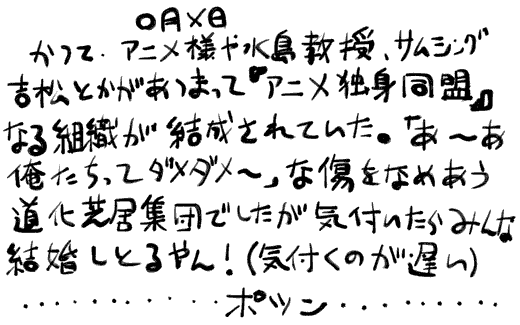 〇月×日
かつて、アニメ様や水島教授、サムシング
吉松とかがあつまって『アニメ独身同盟』
なる組織が結成されていた。「あ〜あ
俺たちってダメダメ〜」な傷をなめあう
道化芝居集団でしたが気付いたらみんな
結婚しとるやん！(気付くのが遅い)
・・・・・・・・・・・ポツン・・・・・・・・・